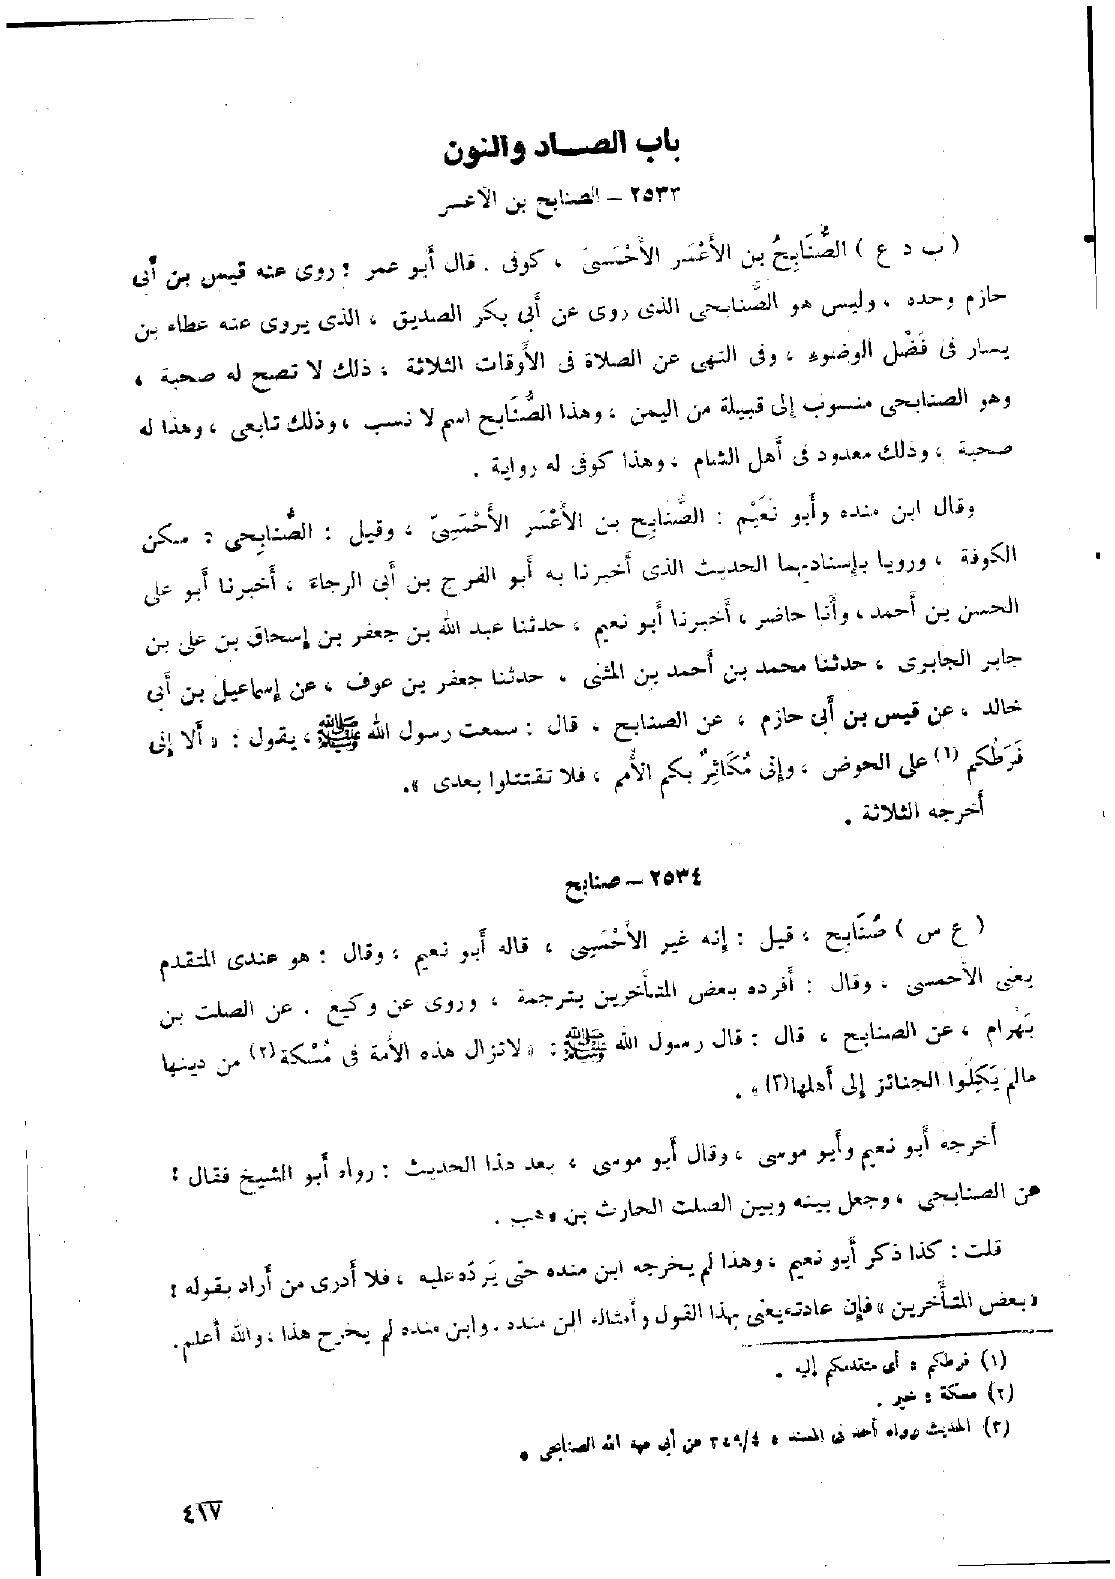 باب الصـــاد والنون
٢٥٣٣ – الصنابح بن الأعسر
( ب د ع ) الصُّنَابِحُ بن الأَعْسَر الأَحْمَسىّ ، كوفى . قال أبو عمر : روى عنه قيس بن أبى
حازم وحده ، وليس هو الصُّنابحى الذى روى عن أبى بكر الصديق ، الذى يروى عنه عطاء بن
يسار فى فَضْل الوضوء ، وفى النهى عن الصلاة فى الأوقات الثلاثة ، ذلك لا تصح له صحبة ،
وهو الصنابحى منسوب إلى قبيلة من اليمن ، وهذا الصُّنَابح اسم لا نسب ، وذلك تابعى ، وهذا له
صحبة ، وذلك معدود فى أهل الشام ، وهذا كوفى له رواية .
وقال ابن منده وأبو نعَيْم : الصُّنَابِح بن الأَعْسَر الأَحْمَسِىّ ، وقيل : الصُّنابِحى ، سكن
الكوفة ، ورويا بإسناديهما الحديث الذى أخبرنا به أبو الفرج بن أبى الرجاء ، أخبرنا أبو على
الحسن بن أحمد ، وأنا حاضر ، أخبرنا أبو نعيم ، حدثنا عبد الله بن جعفر بن إسحاق بن على بن
جابر الجابرى ، حدثنا محمد بن أحمد بن المثنى ، حدثنا جعفر بن عوف ، عن إسماعيل بن أبى
خالد ، عن قيس بن أبى حازم ، عن الصنابح ، قال : سمعت رسول الله ﷺ ، يقول : « ألا إنى
فَرَطُكم (١) على الحوض ، وإنى مُكَاثِرٌ بكم الأُمم ، فلا تقتتلوا بعدى ».
أخرجه الثلاثة .
٢٥٣٤ – صنابح
( ع س ) صُنَابِح ، قيل : إنه غير الأَحْمَسِى ، قاله أبو نعيم ، وقال : هو عندى المتقدم
يعنى الأحمسى ، وقال : أفرده بعض المتأخرين بترجمة ، وروى عن وكيع . عن الصلت بن
بَهْرام ، عن الصنابح ، قال : قال رسول الله ﷺ : « لا تزال هذه الأمة فى مُسْكة (٢) من دينها
مالم يَكِلُوا الجنائز إلى أهلها(٣) » .
أخرجه أبو نعيم وأبو موسى ، وقال أبو موسى ، بعد هذا الحديث : رواه أبو الشيخ فقال :
عن الصنابحى ، وجعل بينه وبين الصلت الحارث بن وهب .
قلت : كذا ذكر أبو نعيم ، وهذا لم يخرجه ابن منده حتى يَردّه عليه ، فلا أدرى من أراد بقوله :
« بعض المتأخرين » فإن عادته يعنى بهذا القول وأمثاله ابن منده . وابن منده لم يخرج هذا ، والله أعلم .
(١) فرطكم : أى متقدمكم إليه .
(٢) مسكة : خير .
(٣) الحديث رواه أحمد فى المسند : ٣٤٩/٤ عن أبى عبد الله الصنابحى .
٤١٧